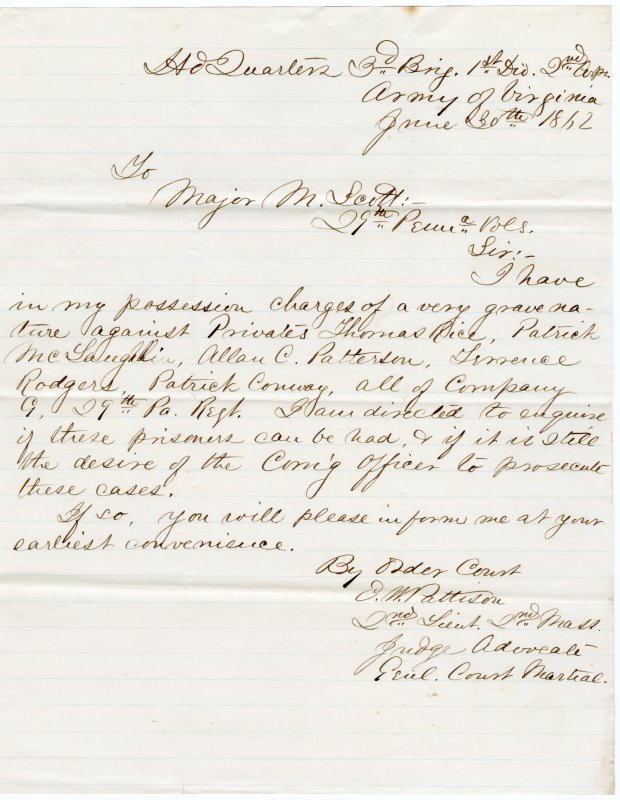 Hd Quarters 3d Brig. 1st Div. 2nd Corps.
Army of Virginia
June 30th 1862
To
Major M. Scott:-
29th Penna Vols.
Sir:-
I have
in my possession charges of a very grave na-
ture against Privates Thomas Rice, Patrick
McLaughlin, Allan C. Patterson, Terrence
Rodgers, Patrick Conway, all of Company
G, 29th Pa. Regt. I am directed to enquire
if these prisoners can be had, & if it is still
the desire of the Com'g Officer to prosecute
these cases.
If so, you will please inform me at your
earliest convenience.
By Order Court
E. W. Pattison
2nd Lieut. 2nd Mass.
Judge Advocate
Genl. Court Martial.